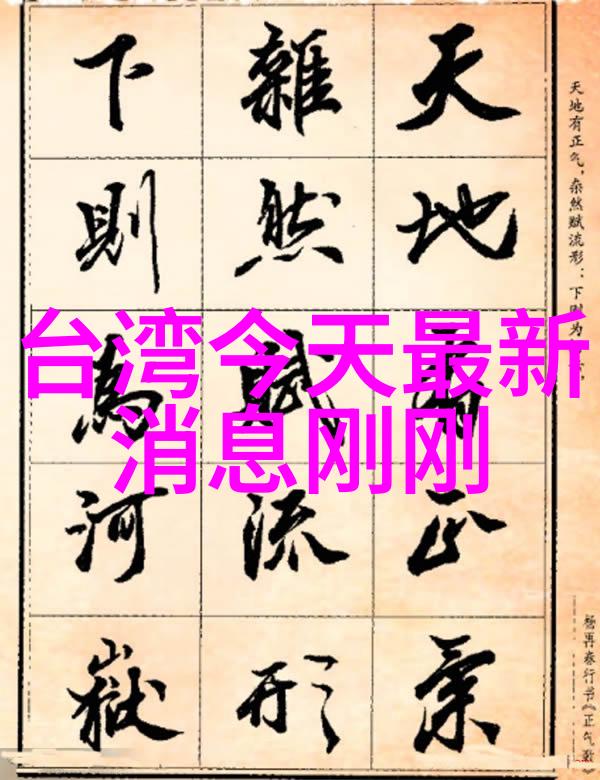 天地有正氣
雜然賦流形
下則為河嶽
天地有正气，杂然赋流形：下则为
杨再春行书《正气歌》
台湾今天最新
消息刚刚